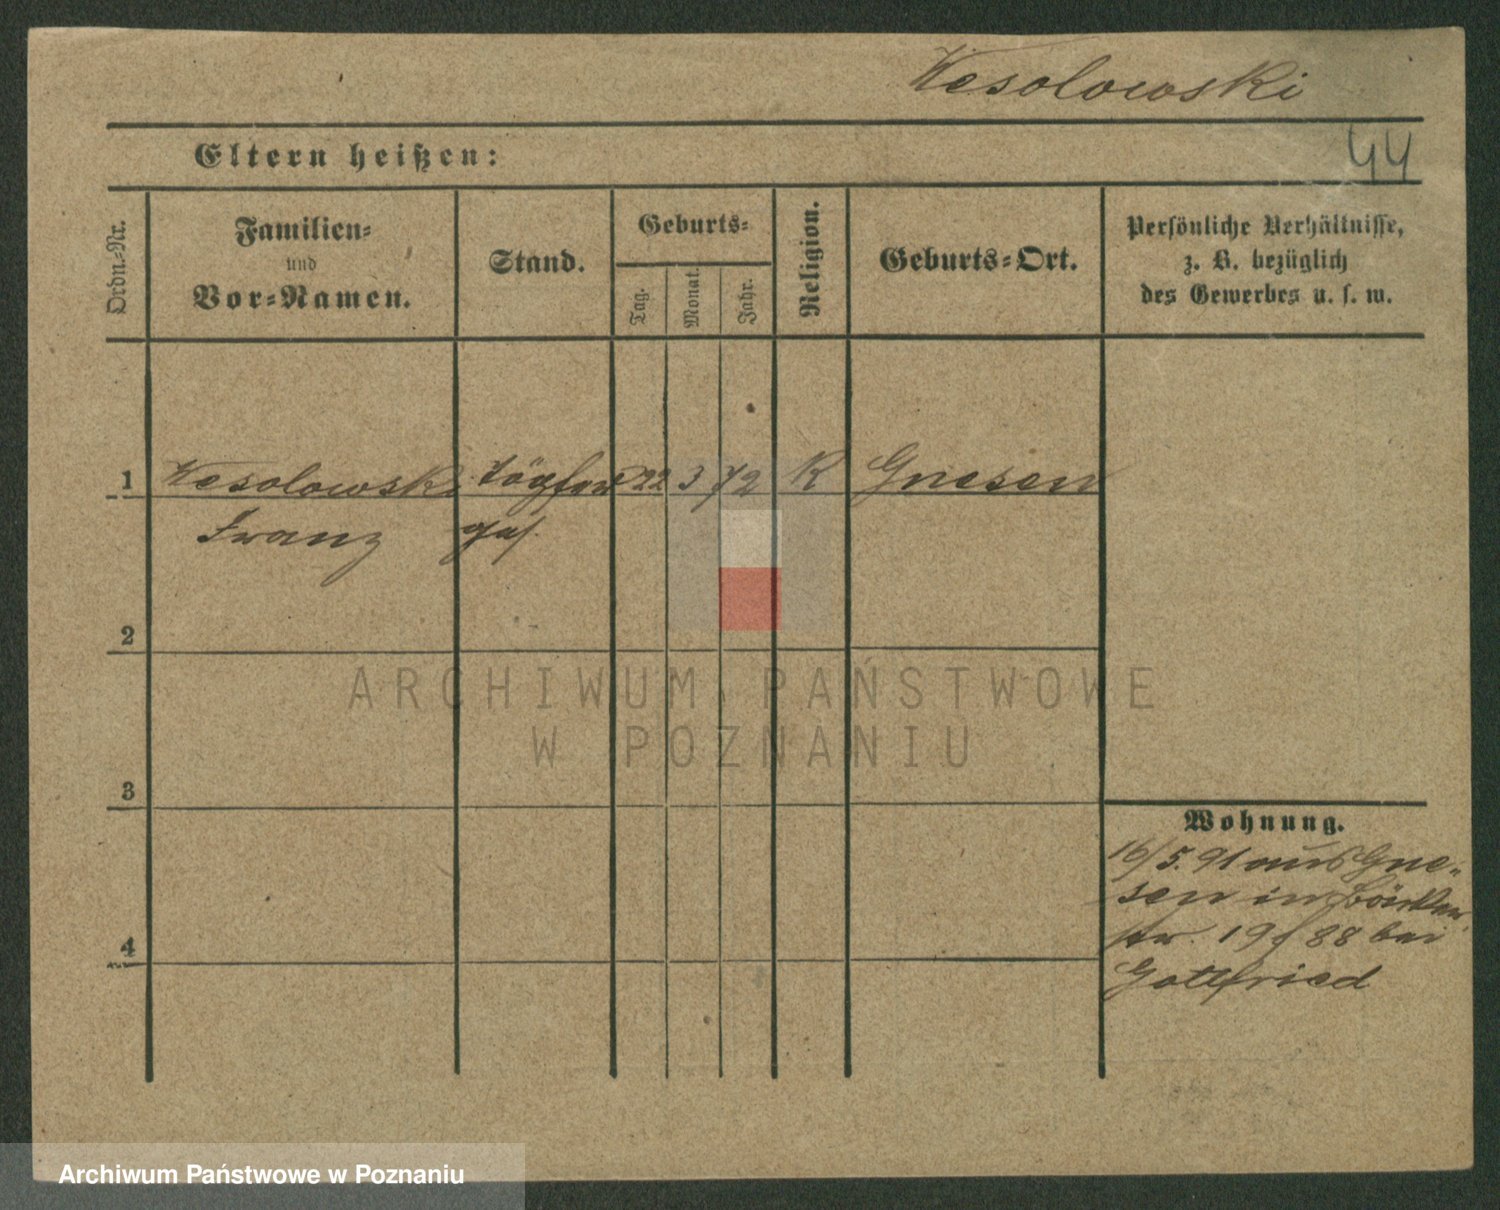 Wesolowski
Eltern heißen:
44
Ordn.-Nr.
Familien-
und
Vor-Namen.
Stand.
Geburts-
Tag.
Monat.
Jahr.
Religion.
Geburts-Ort.
Persönliche Verhältnisse,
z. B. bezüglich
des Gewerbes u. s. w.
1
Wesolowski Töpfer 22 3 72 K Gnesen
Franz ges.
2
ARCHIWUM PAŃSTWOWE
W POZNANIU
3
Wohnung.
16/5. 91 aus Gne-
sen in
str. 19 f 88 bei
4
Gottfried
Archiwum Państwowe w Poznaniu